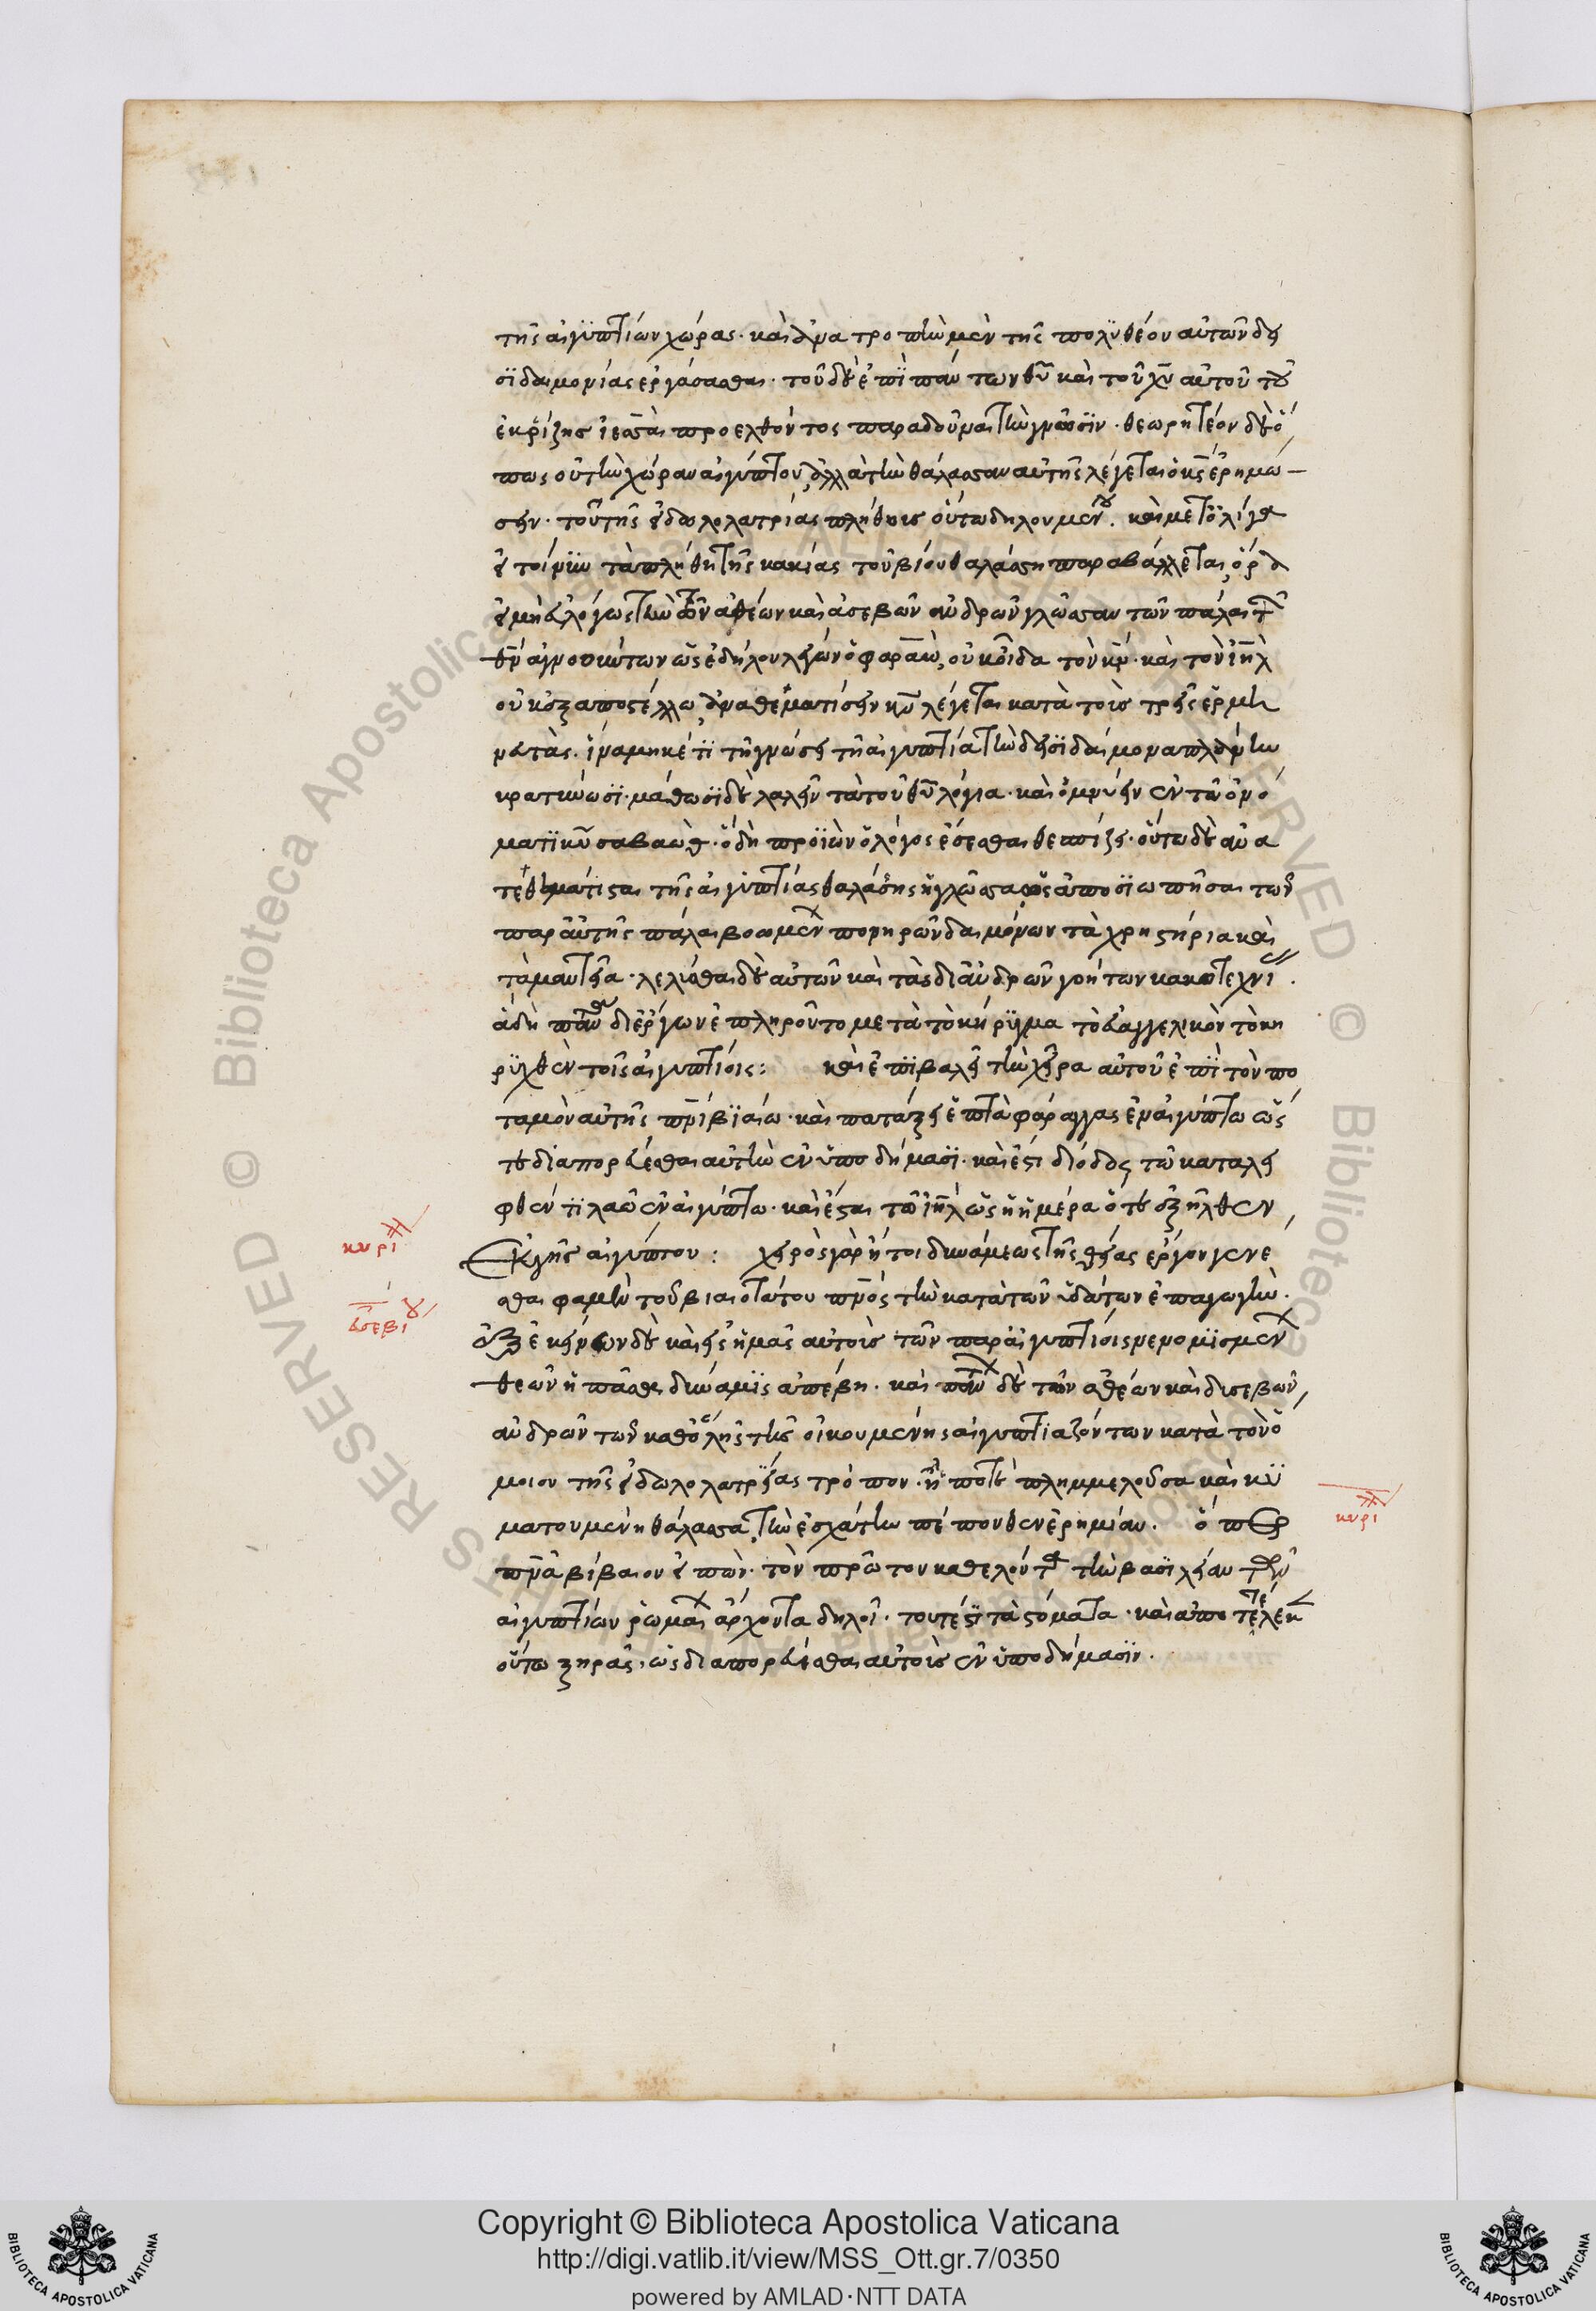 της αἰγυπτίων χώρας· καὶ ἅμα τροπὴν μὲν της πολυθέου αὐτῶν δει
σιδαιμονίας ἐργάσασθαι· τοῦ δὲ ἐπὶ πάντων θῦ καὶ τοῦ χῦ αὐτοῦ τοῦ
ἐκ ῥίζης ἰεσσαὶ προελθόντος παραδοῦναι τὴν γνῶσιν· θεωρητέον δὲ ὅ
πως οὐ τὴν χώραν αἰγύπτου, ἀλλὰ τὴν θάλασσαν αὐτῆς λέγεται ὁ κς ἐρημώ
σειν· τοῦ τῆς εἰδωλολατρίας πλήθους οὕτω δηλουμένου· καὶ μετ' ὀλίγα
τὰ πλήθη τῆς κακίας τοῦ βίου θαλάσση παραβάλλεται, ὅρα
εἰ μὴ εὐλόγως τὴν τῶν ἀθέων καὶ ἀσεβῶν ἀνδρῶν γλῶσσαν τῶν πάλαι τὸν
θν ἀγνοούντων ὡς ἐδήλου λέγων ὁ φαραώ, οὐκ οἶδα τὸν κν· καὶ τὸν ιηλ
οὐκ ἐξαποστέλλω, ἀναθεματίσειν κν λέγεται κατὰ τοὺς τρεῖς ἑρμη
νευτάς· ἵνα μηκέτι τῇ γνώσει τῇ αἰγυπτίᾳ τὴν δεισιδαίμονα πλάνην
κρατύνωσι· μάθωσι δὲ λαλεῖν τὰ τοῦ θῦ λόγια· καὶ ὀμνύειν ἐν τῶ ὀνό
ματι κῦ σαβαώθ· ὃ δὴ προϊὼν ὁ λόγος ἔσεσθαι θεσπίζει· οὕτω δὲ ἀνα
τεθεμάτισται τῆς αἰγυπτίας θαλάσσης ἡ γλῶσσα ὡς ἀποσιωπῆσαι τῶν
παρ' αὐτῆς πάλαι βοωμένων πονηρῶν δαιμόνων τὰ χρηστήρια καὶ
τὰ μαντεῖα· λελύσθαι δὲ αὐτῶν καὶ τὰς δι' ἀνδρῶν γοήτων κακοτεχνίας·
ἃ δὴ πάντα δι' ἔργων ἐπληροῦντο μετὰ τὸ κήρυγμα τὸ εὐαγγελικὸν τὸ κη
ρυχθὲν τοῖς αἰγυπτίοις: καὶ ἐπιβαλεῖ τὴν χεῖρα αὐτοῦ ἐπὶ τὸν πο
ταμὸν αὐτῆς πνι βιαίω· καὶ πατάξει ἑπτὰ φάραγγας ἐν αἰγύπτω ὥς
τε διαπορεύεσθαι αὐτὴν ἐν ὑποδήμασι· καὶ ἔσται δίοδος τῶ καταλει
φθέντι λαῶ ἐν αἰγύπτω· καὶ ἔσται τῶ ιηλ ὡς ἡ ἡμέρα ὅτε ἐξῆλθεν
κυρι
Ἐκ γῆς αἰγύπτου: χειρὸς γὰρ ἤτοι δυνάμεως τῆς θείας ἔργον γενέ
σθαι φαμὲν τοῦ βιαιοτάτου πνς τὴν κατὰ τῶν ὑδάτων ἐπαγωγήν·
εὐσεβίου
ἐξ ἐκείνων δὲ καὶ εἰς ἡμᾶς αὐτοὺς τῶν παρ' αἰγυπτίοις νενομισμένων
θεῶν ἡ πᾶσα δύναμις ἀπέβη· καὶ πάντων δὲ τῶν ἀθέων καὶ δυσεβῶν
ἀνδρῶν τῶν καθ' ὅλης τῆς οἰκουμένης αἰγυπτιαζόντων κατὰ τὸν ὅ
μοιον τῆς εἰδωλολατρείας τρόπον· ἥ ποτε πλημμελοῦσα καὶ κυ
ματουμένη θάλασσα, τὴν ἐσχάτην πέπονθεν ἐρημίαν. ὅπερ
κυρι
πνα βίβαιον εἰπών· τὸν πρῶτον καθελόντα τὴν βασιλείαν τῶν
αἰγυπτίων ῥωμαίων ἄρχοντα δηλοῖ· τουτέστι τὰ στόματα· καὶ ἀποτελέσει
οὕτω ξηράς, ὡς διαπορεύεσθαι αὐτοὺς ἐν ὑποδήμασιν.
Copyright © Biblioteca Apostolica Vaticana
http://digi.vatlib.it/view/MSS_Ott.gr.7/0350
powered by AMLAD·NTT DATA